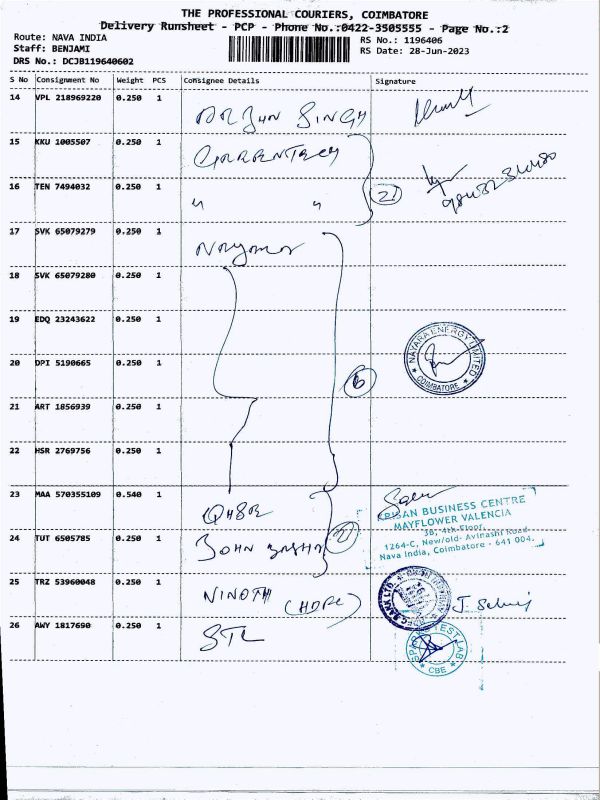 THE PROFESSIONAL COURIERS, COIMBATORE
Delivery Runsheet - PCP - Phone No.:0422-3505555 - Page No.:2
Route: NAVA INDIA
RS No.: 1196406
Staff: BENJAMI
RS Date: 28-Jun-2023
DRS No.: DCJB119640602
S No Consignment No Weight PCS Consignee Details Signature
14 VPL 218969220 0.250 1 ARJUN SINGH
15 KKU 1005507 0.250 1
16 TEN 7494032 0.250 1 〃 〃 2
17 SVK 65079279 0.250 1
18 SVK 65079280 0.250 1
19 EDQ 23243622 0.250 1
NAYARA ENERGY LIMITED
COIMBATORE
20 DPI 5190665 0.250 1 6
21 ART 1856939 0.250 1
22 HSR 2769756 0.250 1
23 MAA 570355109 0.540 1
KRISAN BUSINESS CENTRE
MAYFLOWER VALENCIA
3B, 4th Floor,
1264-C, New/old- Avinashi Road
Nava India, Coimbatore - 641 004.
24 TUT 6505785 0.250 1 JOHN BASHA
25 TRZ 53960048 0.250 1
26 AWY 1817690 0.250 1 STL
TEST LAB
CBE